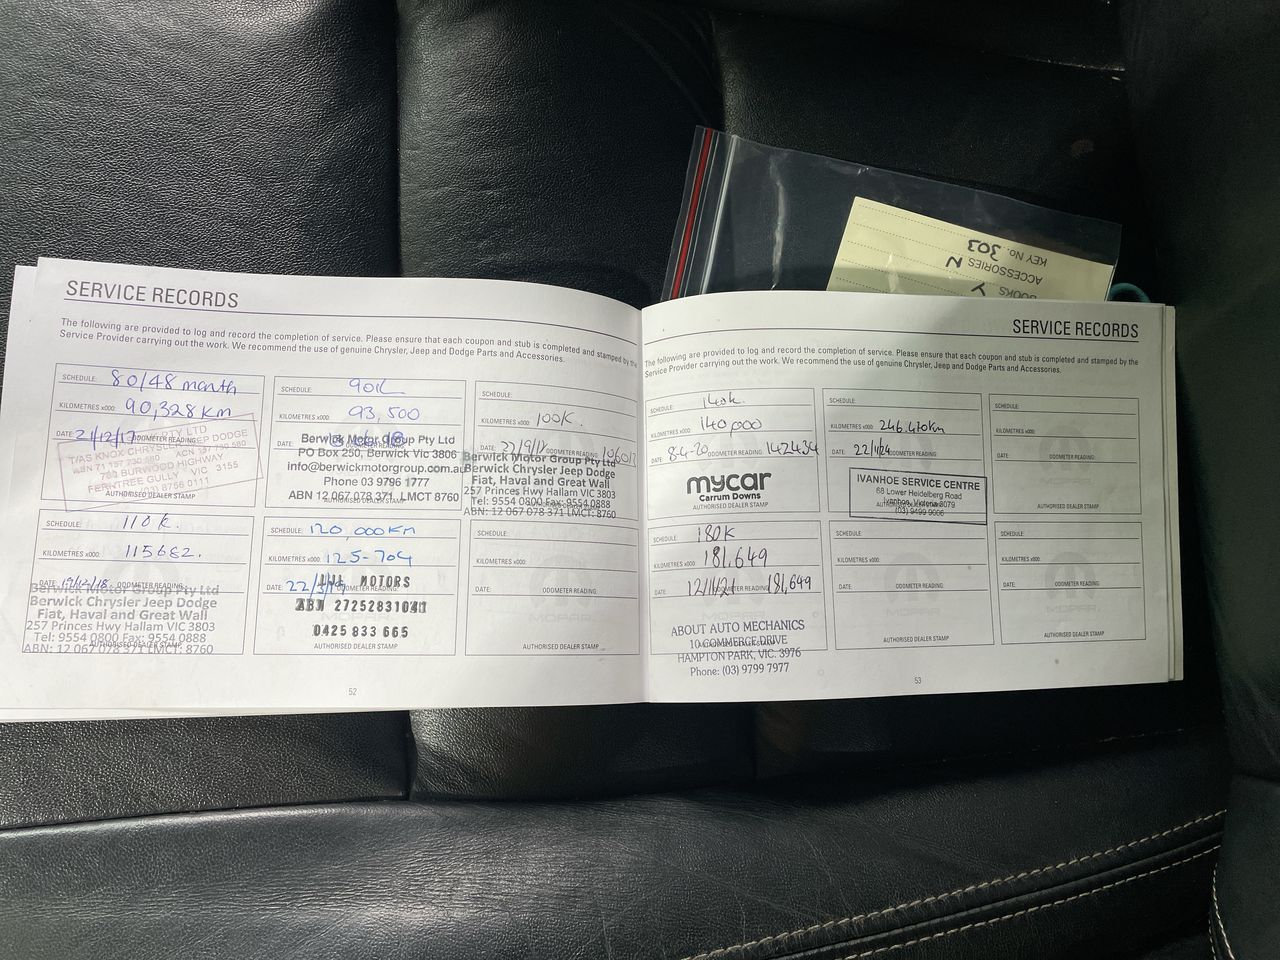 KEY No. 303
ACCESSORIES N
BOOKS Y
SERVICE RECORDS
The following are provided to log and record the completion of service. Please ensure that each coupon and stub is completed and stamped by the
Service Provider carrying out the work. We recommend the use of genuine Chrysler, Jeep and Dodge Parts and Accessories.
SCHEDULE: 80/48 month
KILOMETRES x000: 90,328 KM
DATE: 21/12/17 ODOMETER READING:
PTY LTD
T/AS KNOX CHRYSLER JEEP DODGE
762 BURWOOD HIGHWAY
FERNTREE GULLY VIC 3155
(03) 8756 0111
AUTHORISED DEALER STAMP
SCHEDULE: 90K
KILOMETRES x000: 93,500
DATE:
Berwick Motor Group Pty Ltd
PO Box 250, Berwick Vic 3806
info@berwickmotorgroup.com.au
Phone 03 9796 1777
ABN 12 067 078 371 LMCT 8760
AUTHORISED DEALER STAMP
SCHEDULE:
KILOMETRES x000: 100K.
DATE:
Berwick Motor Group Pty Ltd
Berwick Chrysler Jeep Dodge
Fiat, Haval and Great Wall
257 Princes Hwy Hallam VIC 3803
Tel: 9554 0800 Fax: 9554 0888
ABN: 12 067 078 371 LMCT: 8760
SCHEDULE: 110K.
KILOMETRES x000: 115682.
DATE: 19/12/18. ODOMETER READING:
Berwick Motor Group Pty Ltd
Berwick Chrysler Jeep Dodge
Fiat, Haval and Great Wall
257 Princes Hwy Hallam VIC 3803
Tel: 9554 0800 Fax: 9554 0888
AUTHORISED DEALER STAMP
ABN: 12 067 078 371 LMCT: 8760
SCHEDULE: 120,000KM
KILOMETRES x000: 125-704
DATE:
MOTORS
ABN 27252831041
0425 833 665
AUTHORISED DEALER STAMP
SCHEDULE:
KILOMETRES x000:
DATE: ODOMETER READING:
AUTHORISED DEALER STAMP
52
SERVICE RECORDS
The following are provided to log and record the completion of service. Please ensure that each coupon and stub is completed and stamped by the
Service Provider carrying out the work. We recommend the use of genuine Chrysler, Jeep and Dodge Parts and Accessories.
SCHEDULE: 140k.
KILOMETRES x000: 140,000
DATE: 8-4-20 ODOMETER READING: 142434
mycar
Carrum Downs
AUTHORISED DEALER STAMP
SCHEDULE:
KILOMETRES x000: 246.470km
DATE: 22/1/24 ODOMETER READING:
IVANHOE SERVICE CENTRE
68 Lower Heidelberg Road
Ivanhoe, Victoria 3079
(03) 9499 9006
SCHEDULE:
KILOMETRES x000:
DATE: ODOMETER READING:
MOPAR
AUTHORISED DEALER STAMP
SCHEDULE: 180K
KILOMETRES x000: 181,649
DATE: 12/11/21 ODOMETER READING: 181,649
ABOUT AUTO MECHANICS
10 COMMERCE DRIVE
HAMPTON PARK, VIC. 3976
Phone: (03) 9799 7977
SCHEDULE:
KILOMETRES x000:
DATE: ODOMETER READING:
MOPAR
AUTHORISED DEALER STAMP
SCHEDULE:
KILOMETRES x000:
DATE: ODOMETER READING:
MOPAR
AUTHORISED DEALER STAMP
53